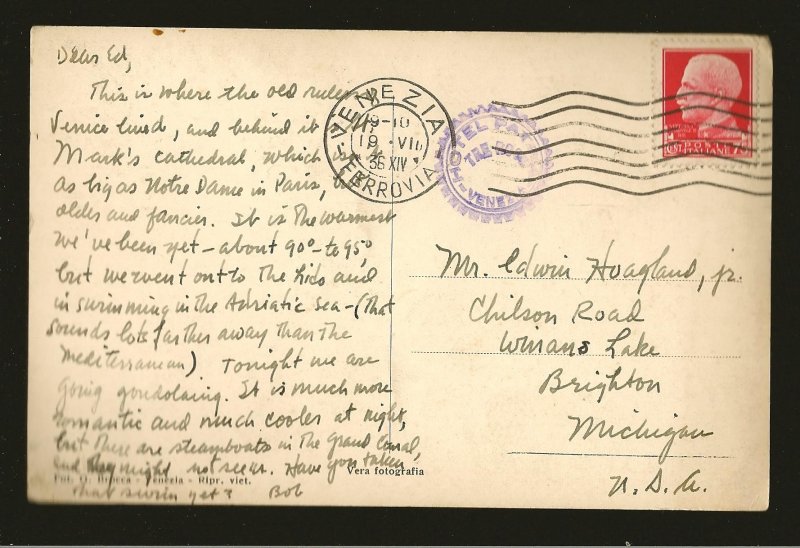 Dear Ed,
This is where the old rulers
Venice lived, and behind it
Mark's cathedral, which is
as big as Notre Dame in Paris,
older and fancier. It is the warmest
we've been yet - about 90° to 95°,
but we went out to the Lido and
in swimming in the Adriatic Sea - (that
sounds lots farther away than the
Mediterranean) Tonight we are
going gondolaing. It is much more
romantic and much cooler at night,
but there are steamboats in the Grand Canal,
and they might not seem. Have you taken
that swim yet? Bob
Vera fotografia
Venezia - Ripr. viet.
VENEZIA
19-10
19 · VII
36 XIV
FERROVIA
VENEZ
Mr. Edwin Hoagland, jr.
Chilson Road
Winans Lake
Brighton
Michigan
U.S.A.